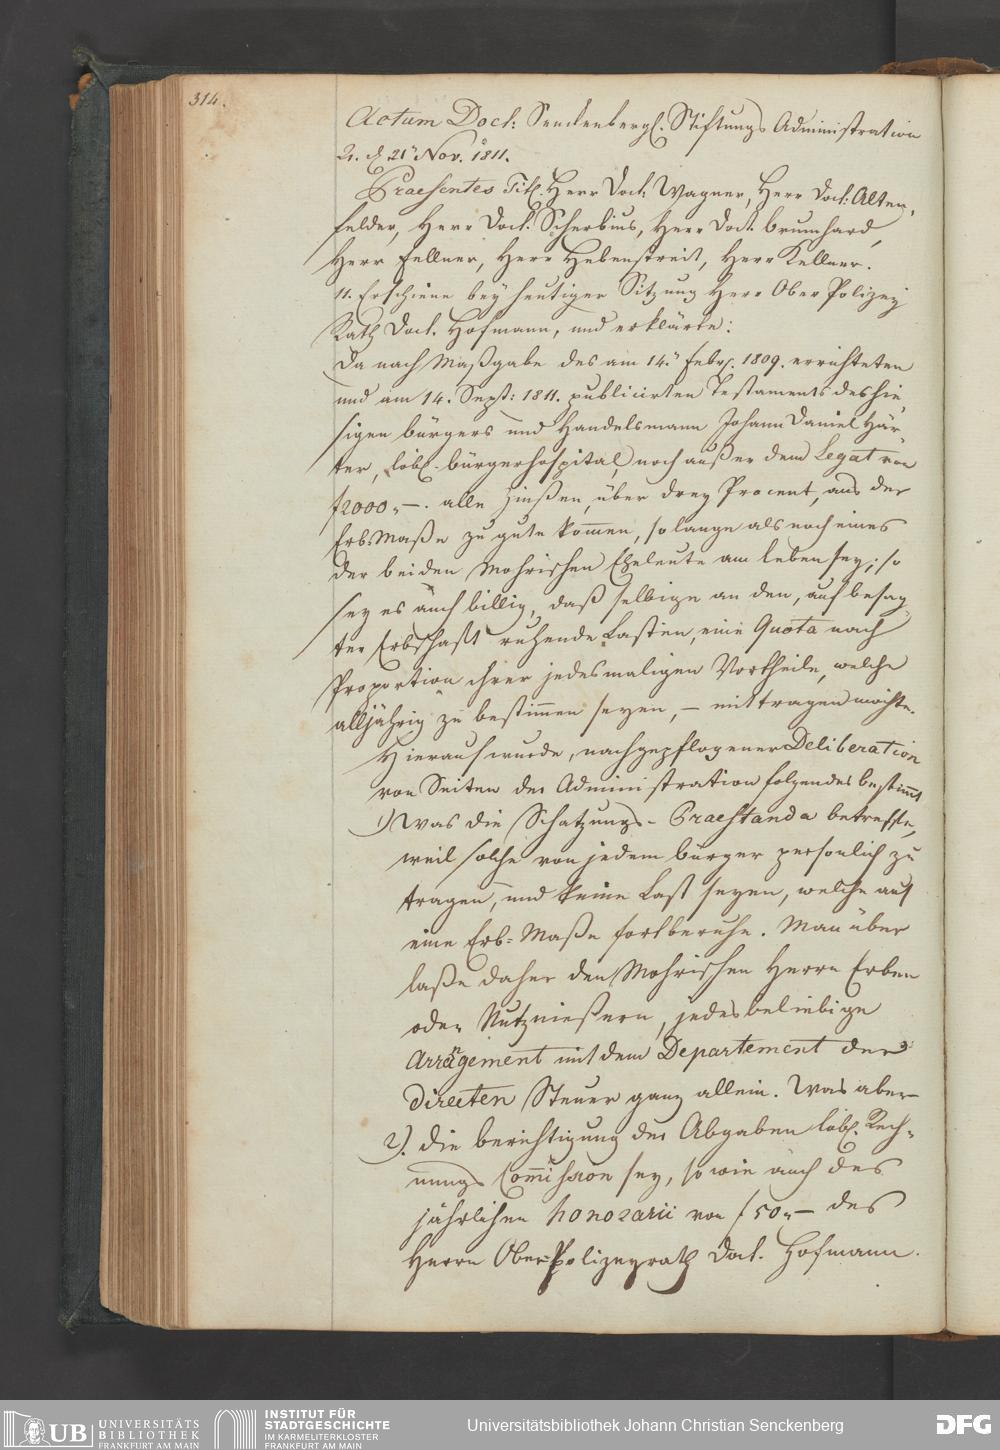 314.
Actum Doct: Senckenbergl. Stiftungs Administration
d. 21ⁿ Nov. 1811.
Praesentes Titl. Herr Doct. Wagner, Herr Doct. Alten,
felder, Herr Doct. Scherbius, Herr Doct. Brumhard,
Herr Fellner, Herr Hebenstreit, Herr Kellner.
11. Erschiene bey heutiger Sitzung Herr Ober Polizey
Rath Doct. Hofmann, und erklärte:
Da nach Maßgabe des am 14.ⁿ Febr. 1809. errichteten
und am 14. Sept: 1811. publicirten Testaments des hie,
sigen Bürgers und Handelsmann Johann Daniel Här,
ter, löbl. Bürgerhospital, noch außer dem Legat von
f2000„—. alle Zinßen, über drey Procent, aus der
Erb-Maße zu gute kom̅en, so lange als noch eines
der beiden Mohrischen Eheleute am Leben sey; so
sey es auch billig, daß selbige an den, auf besag,
ter Erbschaft ruhende Lasten, eine Quota nach
Proportion ihrer jedesmaligen Vortheile, welche
alljährig zu bestim̅en seyen, — mittragen möchte.
Hierauf wurde, nach gepflogener Deliberation
von Seiten der Administration folgendes bestim̅t
1) Was die Schatzungs-Praestanda betreffe,
weil solche von jedem Bürger persönlich zu
tragen, und keine Last seyen, welche auf
eine Erb-Maße fortberuhe. Man über
laße daher den Mohrischen Herrn Erben
oder Nutznießern, jedes beliebige
Arrangement mit dem Departement der
directen Steuer ganz allein. Was aber
2). die Berichtigung der Abgaben löbl. Rech,
nungs Com̅ission sey, so wie auch des
jährlichen honorarii von f50„— des
Herrn Ober Polizeyrath Doct. Hofmann.
UB UNIVERSITÄTS
BIBLIOTHEK
FRANKFURT AM MAIN
INSTITUT FÜR
STADTGESCHICHTE
IM KARMELITERKLOSTER
FRANKFURT AM MAIN
Universitätsbibliothek Johann Christian Senckenberg
DFG